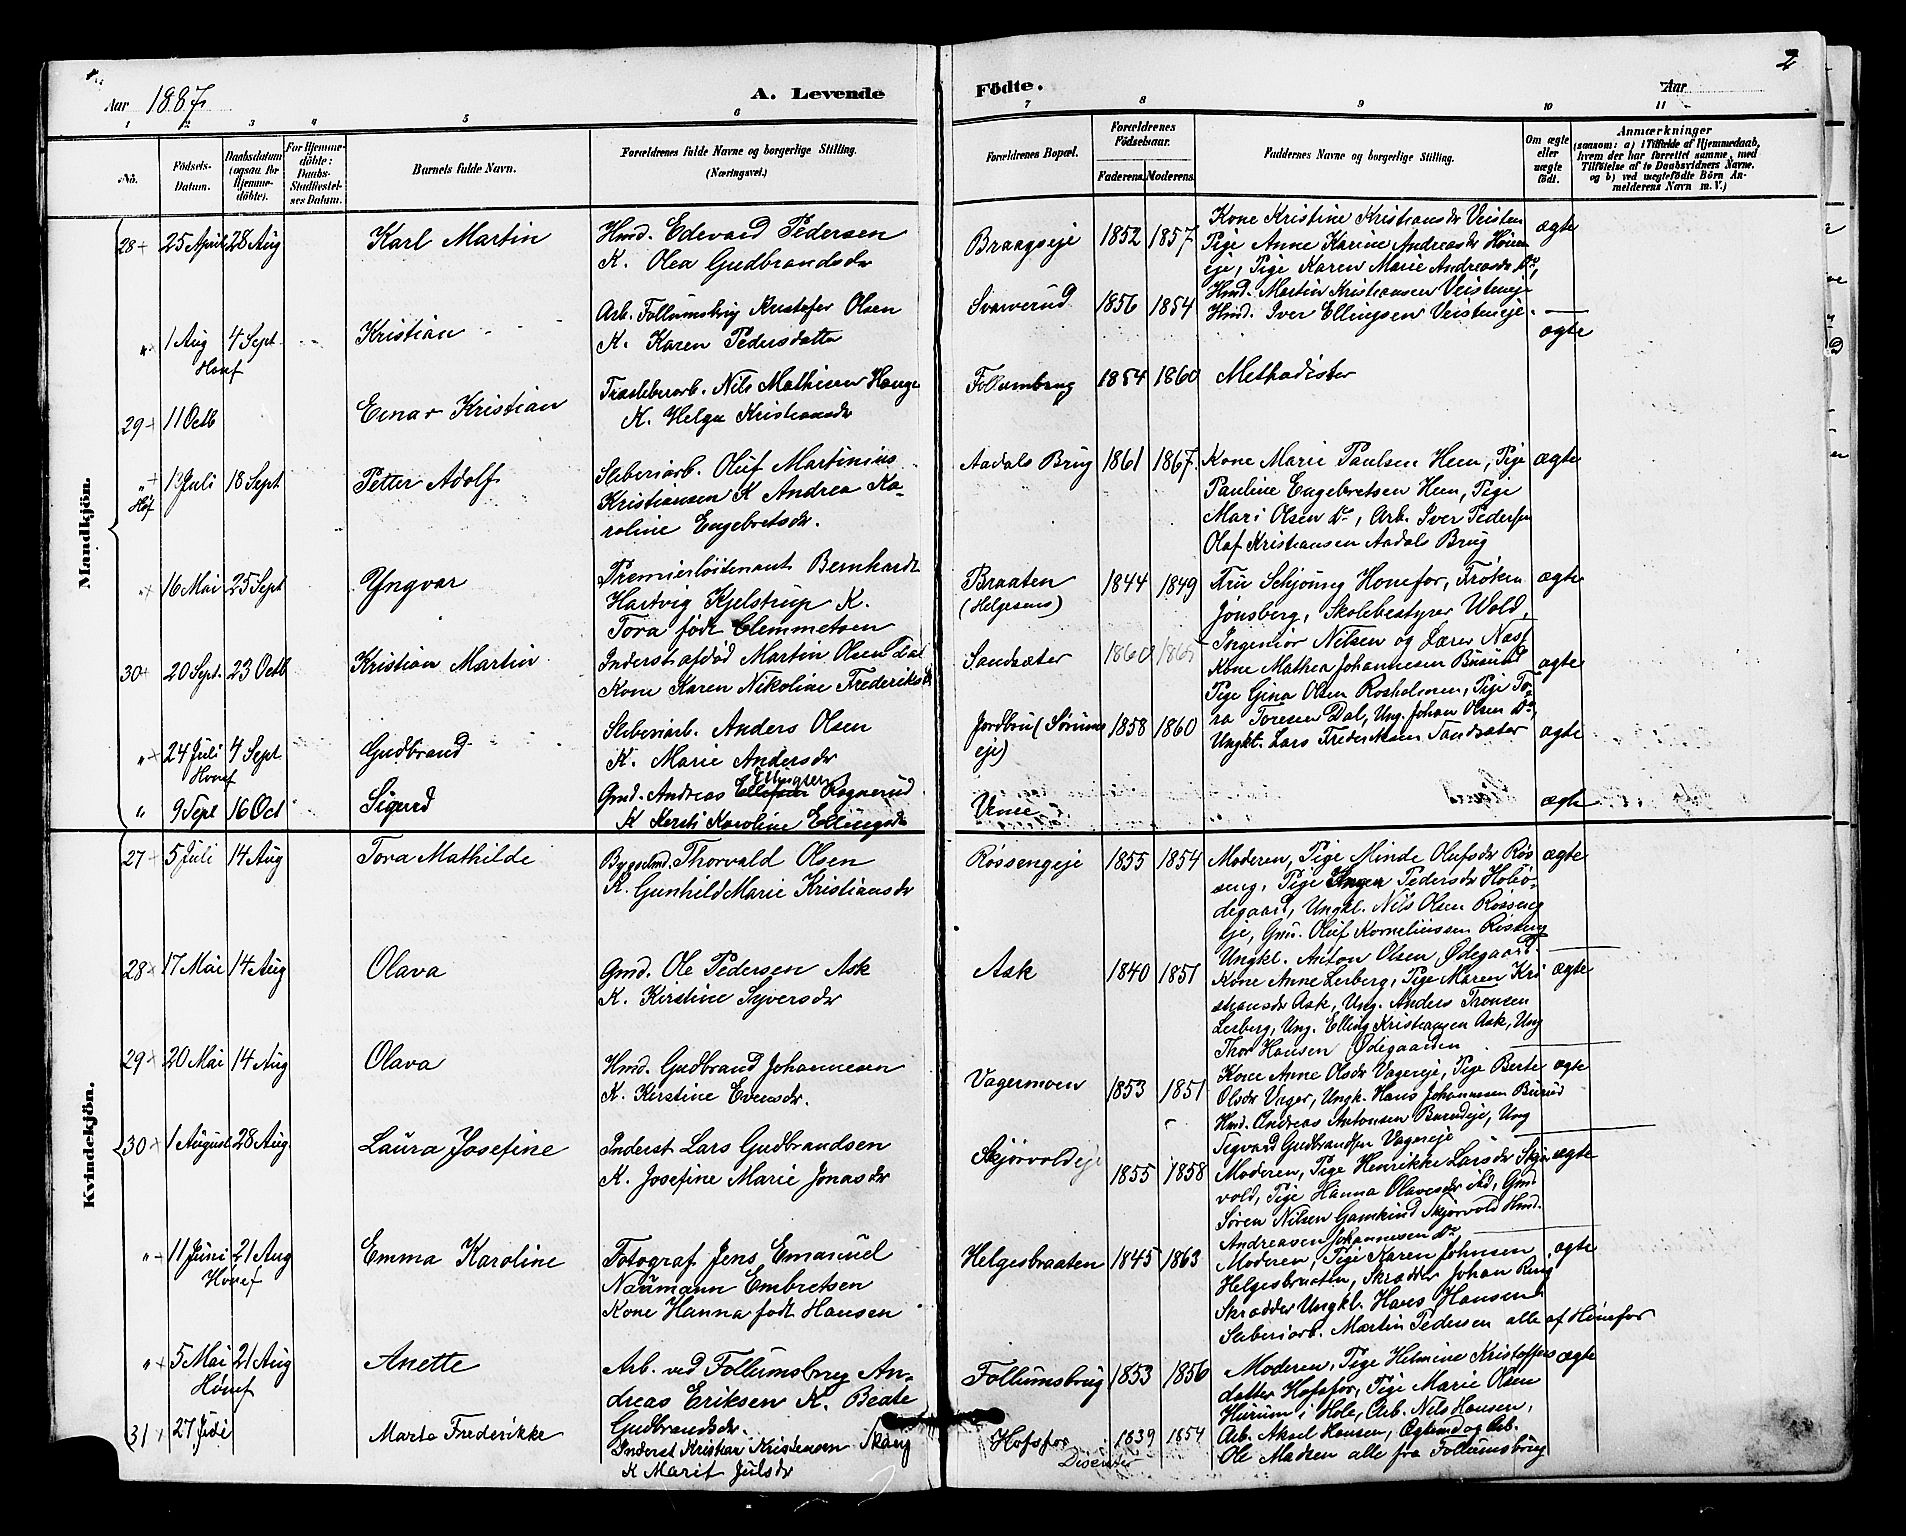 Aar 1887.
A. Levende
Födte.
Aar
2
1 2 3 4 5 6 7 8 9 10 11
No.
Födsels-Datum.
Daabsdatum (ogsaa for Hjemmedöbte).
For Hjemmedöbte: Daabs-Stadfæstelses Datum.
Barnets fulde Navn.
Forældrenes fulde Navne og borgerlige Stilling. (Næringsvei.)
Forældrenes Bopæl.
Forældrenes Födselsaar.
Faderens. Moderens.
Faddernes Navne og borgerlige Stilling.
Om ægte eller uægte födt.
Anmærkninger
(saasom: a) i Tilfælde af Hjemmedaab, hvem der har forrettet samme, med Tilföielse af to Daabsvidners Navne, og b) ved uægtefödte Börn Anmelderens Navn m. V.)
Mandkjön.
28 + 25 April 28 Aug Karl Martin Hmd. Edevard Pedersen
K. Olea Gudbrandsdr
Braagseje 1852 1857
Kone Kristine Kristiansdr Veisten
Pige Anne Karine Andreasdr Hønen
eje, Pige Karen Marie Andreasdr Do,
Hmd. Martin Kristiansen Veisteneje
Hmd. Iver Ellingsen Veisteneje.
ægte
" 1 Aug 4 Sept Kristian
Hønef
Arb. Follumsbrug Kristofer Olsen
K. Karen Pedersdatter
Svarverud 1856 1854 ægte
29 + 11 Octb Einar Kristian
Træsleberarb. Nils Mathisen Hauge
K. Helga Kristiansdr
Follumbrug 1854 1860 Methodister
" 1 Juli 18 Sept Petter Adolf
Høf
Sleberiarb. Oluf Martinius
Kristiansen K Andrea Ka-
roline Engebretsdr.
Aadals Brug 1861 1867
Kone Marie Paulsen Hem, Pige
Pauline Engebretsen Hem, Pige
Mari Olsen Do, Arb. Iver Pedersen
Olaf Kristiansen Aadals Brug
ægte
" 16 Mai 25 Sept Yngvar
Premierløitenant Bernhardt
Hartvig Kjelstrup K.
Tora født Clemmetsen
Braaten
(Helgesens)
1844 1849
Fru Schjoung Hønefos, Frøken
Jønsberg, Skolebestyrer Wold,
Ingeniør Nilsen og Lærer Næss
ægte
30 + 20 Sept. 23 Octb Kristian Martin
Inderst afdød Martin Olsen Dal
Kone Karen Nikoline Frederiksdr
Sandsæter 1860
Kone Mathea Johannesen Busund
Pige Gina Olsen Rosholmen, Pige To-
ra Toresen Dal, Ung. Johan Olsen Do,
Ungkl. Lars Frederiksen Sandsæter
ægte
" 24 Juli 4 Sept Gudbrand
Hønef
Sleberiarb. Anders Olsen
K. Marie Andersdr
Jordbru (Sørums
eje)
1858 1860 ægte
" 9 Sept 16 Oct Sigurd
Gmd. Andreas Ellingsen Rognerud
K Kersti Karoline Ellingsdr
ægte
Kvindekjön.
27 + 5 Juli 14 Aug Tora Mathilde
Bygselmd. Thorvald Olsen
K. Gunhild Marie Kristiansdr
Røssengeje 1855 1854
Moderen, Pige Minde Olufsdr Røs
seng, Pige Inger Pedersdr Hobø-
degaard, Ungkl. Nils Olsen Røsseng
eje, Gmd. Oluf Korneliussen Røsseng
Ungkl. Anton Olsen Ødegaard.
ægte
28 + 17 Mai 14 Aug Olava
Gmd. Ole Pedersen Ask
K. Kirstine Syversdr
Ask 1840 1851
Kone Anne Lerberg, Pige Maren Kri
stiansdr Ask, Ung. Anders Tronsen
Lerberg, Ung. Elling Kristiansen Ask, Ung
Thor Hansen Ødegaarden
ægte
29 + 20 Mai 14 Aug Olava
Hmd. Gudbrand Johannesen
K. Kirstine Evensdr.
Vagermoen 1853 1851
Kone Anne Olsdr Vagereje, Pige Berte
Olsdr Vager, Ungk. Hans Johannesen Busud
Hmd. Andreas Antonsen Burudeje, Ung
Sigvard Gudbrandsen Vagereje
ægte
30 + 1 August 28 Aug. Laura Josefine
Inderst Lars Gudbrandsen
K. Josefine Marie Jonasdr
Skjørvoldeje 1855 1858
Moderen, Pige Henrikke Larsdr Skjør
vold, Pige Hanna Olavesdr Do, Gmd.
Søren Nilsen Gamkind Skjørvold Hmd.
Andreasen Johannesen Do
ægte
" 11 Juni 21 Aug Emma Karoline
Hønef
Fotograf Jens Emanuel
Naumann Embretsen
Kone Hanna født Hansen
Helgesbraaten 1845 1863
Moderen, Pige Karen Johnsen
Helgesbraaten, Skrædder Johan Ring
Skrædder Ungkl. Hans Hansen
Sleberiarb. Martin Pedersen alle af Hønefos
ægte
" + 5 Mai 21 Aug Anette
Hønef
Arb. ved Follumsbrug An-
dreas Eriksen K. Beate
Gudbrandsdr.
Follumsbrug 1853 1856
Moderen, Pige Helmine Kristoffers
datter Hofsfos, Pige Marie Olsen
Hurum i Hole, Arb. Nils Hansen,
Arb. Aksel Hansen, Ægtmd og Arb.
Ole Madsen alle fra Follumsbrug
ægte
31 + 27 Juli Marta Frederikke
Inderst Kristian Kristensen Skaug
K Marit Julsdr
Hofsfos 1839 1854
Disenter